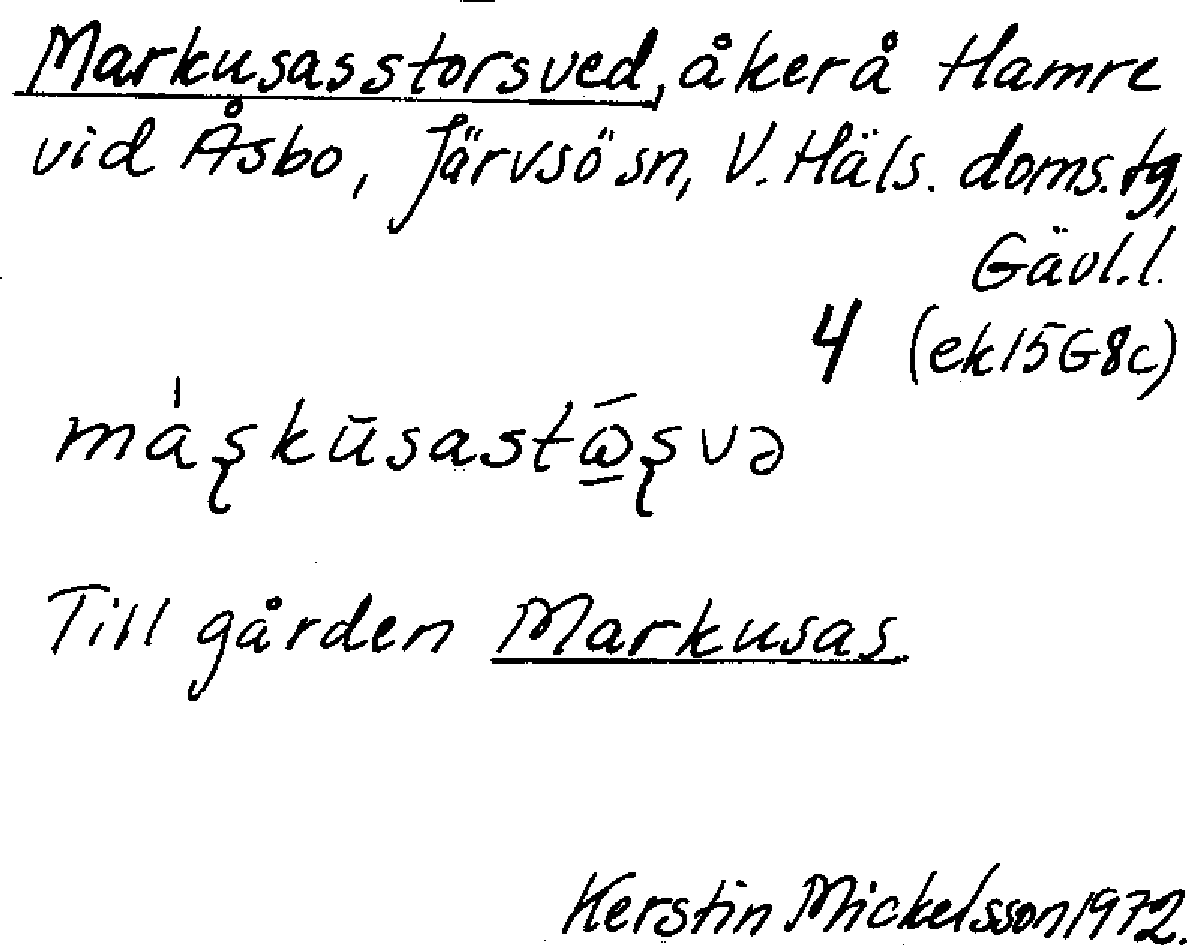 Markusasstorsved, åker å Hamre
vid Åsbo, Järvsö sn, V. Häls. doms. tg,
Gävl.l.
4 (ek 15G8c)
Till gården Markusas.
Kerstin Mickelsson 1972.